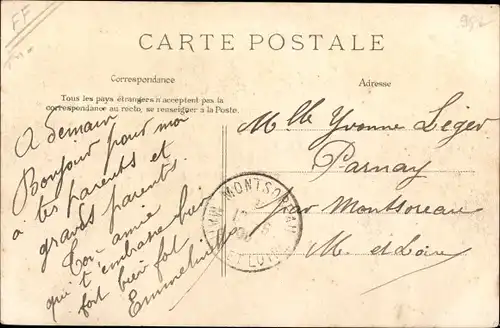 FF
CARTE POSTALE
Correspondance
Adresse
Tous les pays étrangers n'acceptent pas la
correspondance au recto, se renseigner à la Poste.
A demain
Bonjour pour moi
à tes parents et
grands parents.
Ton amie
qui t'embrasse bien
fort bien fort
Emmeline
Mlle Yvonne Léger
Parnay
par Montsoreau
M. et Loire
MONTSOREAU